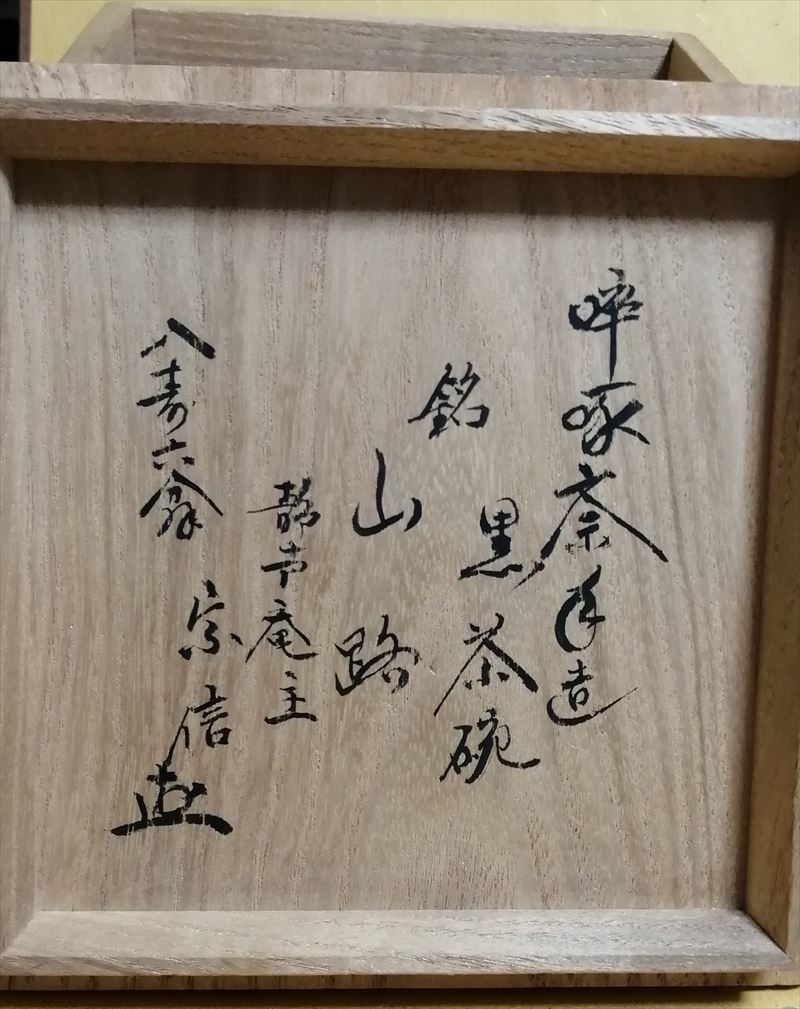 啐啄斎手造
黒茶碗
銘
山路
静中庵主
八寿六翁
宗信